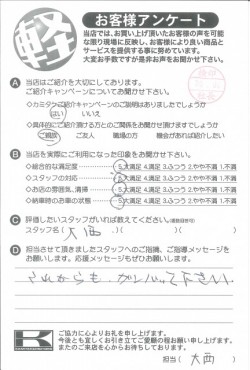 軽
お客様アンケート
当店では、お買い上げ頂いたお客様の声を可能
な限り現場に反映し、お客様により良い商品と
サービスを提供する事に努めています。
大変お手数ですが是非お声をお聞かせ下さい。
A 当店はご紹介を大切にしております。
ご紹介キャンペーンについてお聞かせ下さい。
◇カミタケご紹介キャンペーンのご説明はありましたでしょうか
はい いいえ
◇具体的にご紹介頂ける方とのご関係をお聞かせ頂けますでしょうか
ご親族 ご友人 職場の方 機会があれば紹介したい
B 当店を実際にご利用になった印象をお聞かせ下さい。
◇総合的な満足度 5.大満足 4.満足 3.ふつう 2.やや不満 1.不満
◇スタッフの対応 5.大満足 4.満足 3.ふつう 2.やや不満 1.不満
◇お店の雰囲気、清掃 5.大満足 4.満足 3.ふつう 2.やや不満 1.不満
◇納車時のお車の状態 5.大満足 4.満足 3.ふつう 2.やや不満 1.不満
C 評価したいスタッフがいれば教えてください。(複数回答可)
スタッフ名( 大西 )( )( )
D 担当させて頂きましたスタッフへのご指摘、ご指導メッセージを
お願いします。応援メッセージもぜひお願いします。
これからも、ガンバって下さい。
K
ご協力に心よりお礼を申し上げます。
今後とも宜しくお引き立てご愛顧の程お願い申し上げます。
またのご来店を心からお待ちしております。
担当( 大西 )